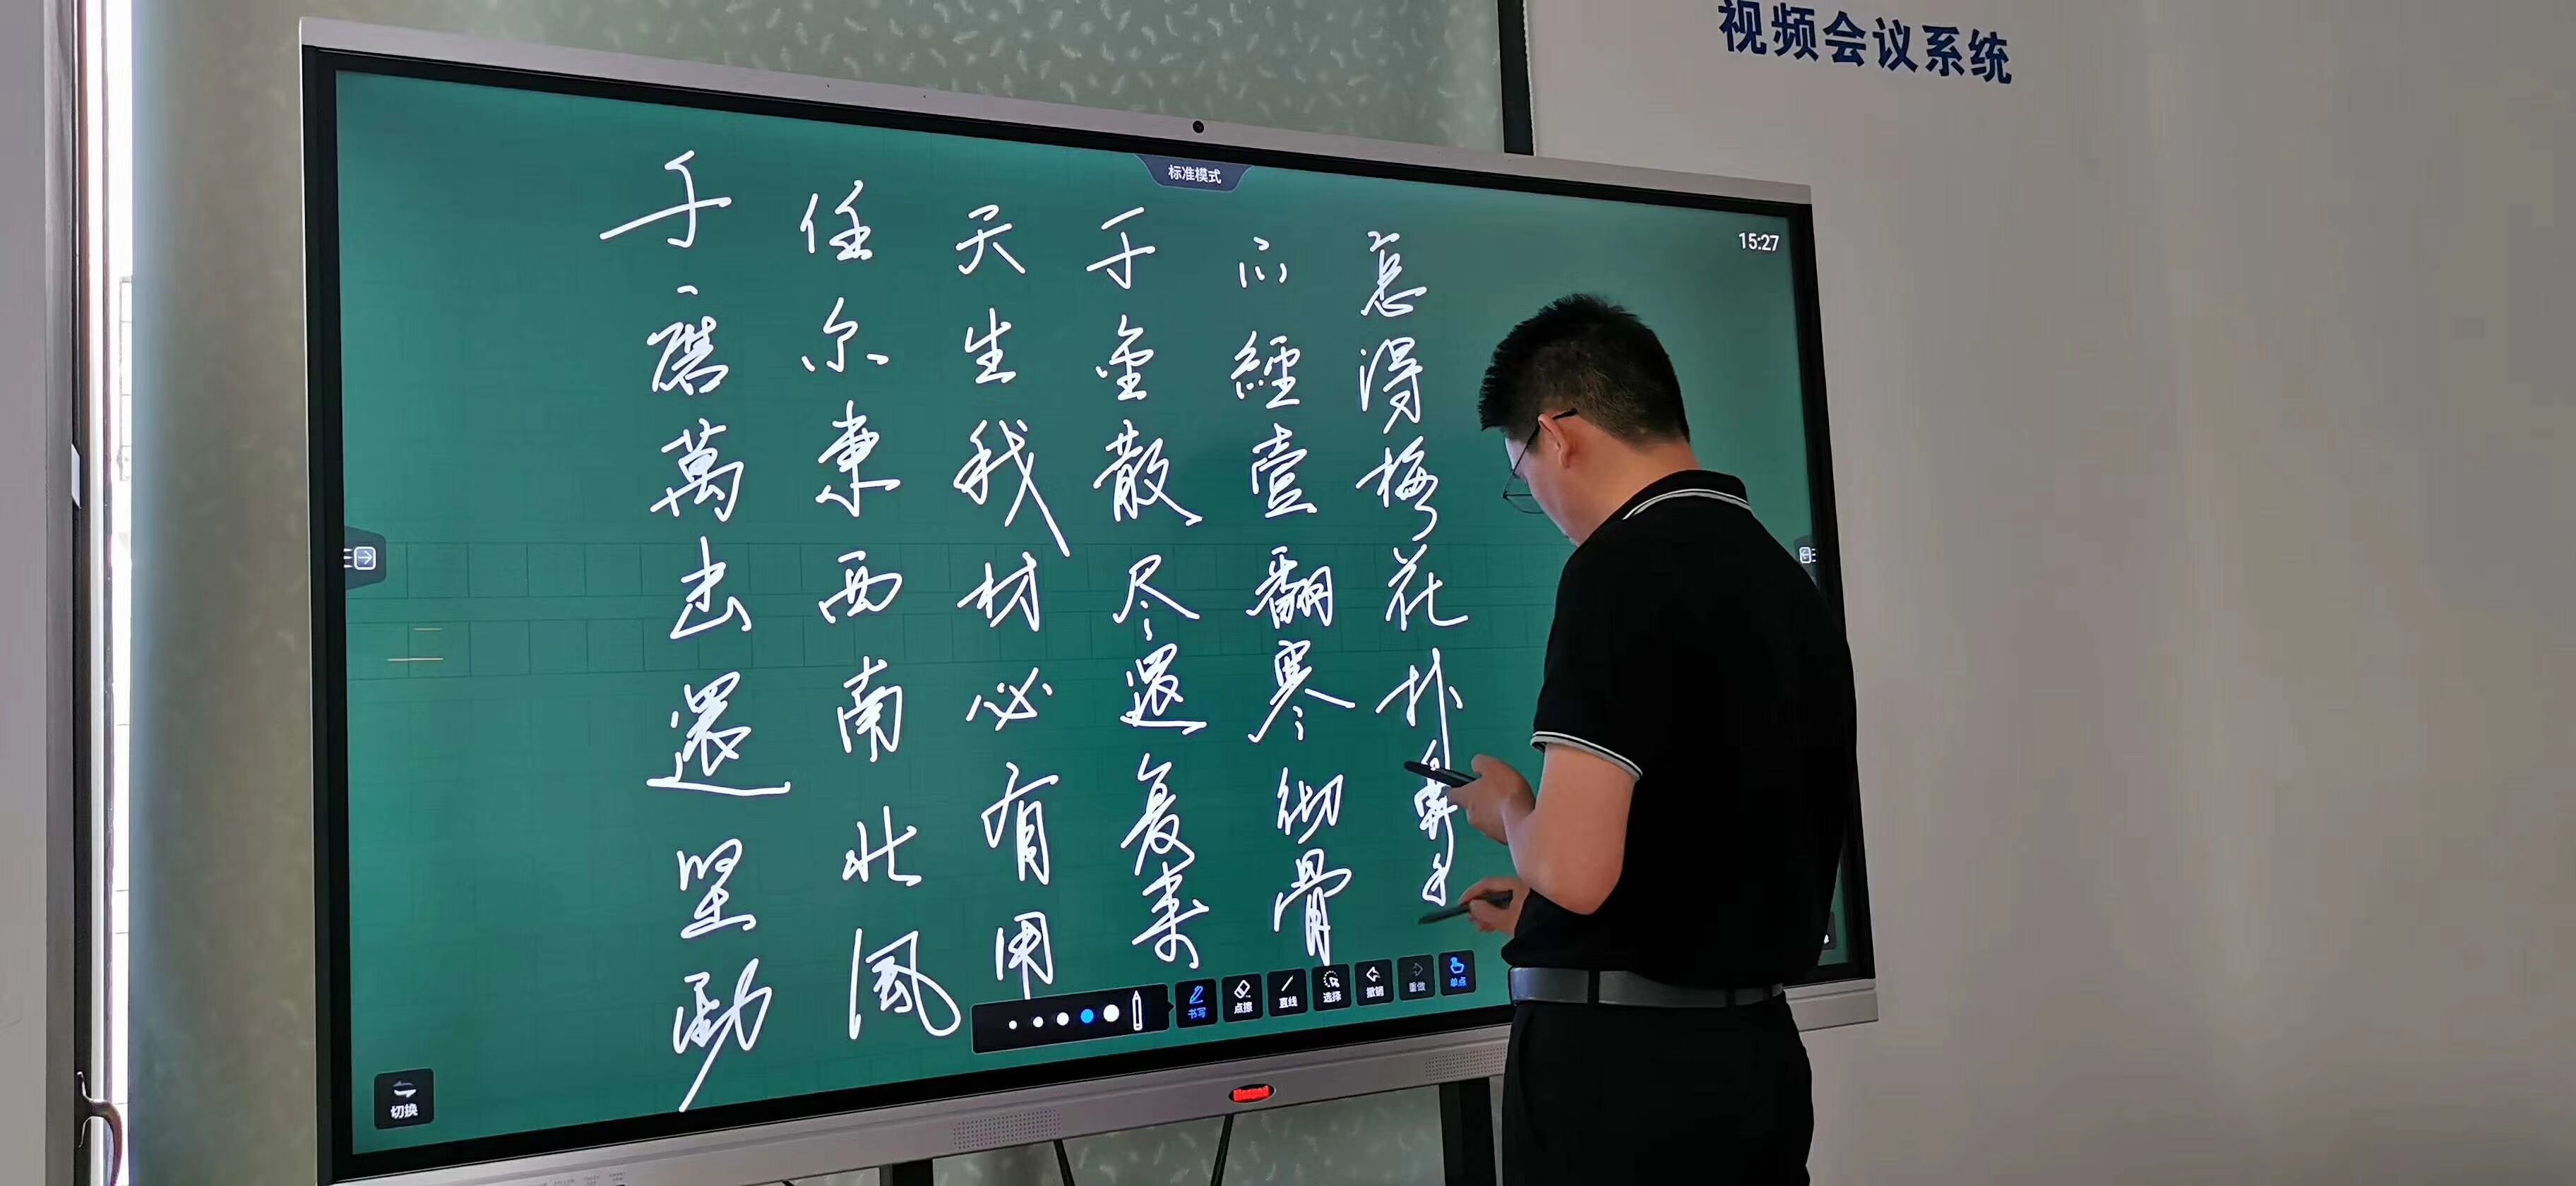 视频会议系统
标准模式
15:27
千磨萬击還坚勁
任尔東西南北風
天生我材必有用
千金散尽還复来
不經壹翻寒彻骨
怎得梅花扑鼻
书写
点擦
直线
选择
撤销
重做
单点
切换